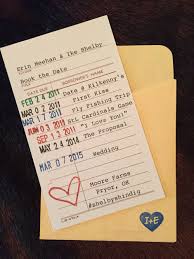 Erin Meehan & Ike Shelby
Book the Date
BORROWER'S NAME
FEB 24 2011 Date @ Kilkenny's
MAR 02 2011 First Kiss
MAR 20 2011 Fly Fishing Trip
JUN 03 2011 St. Cardinals Game
SEP 13 2011 "I Love You!"
MAY 24 2014 The Proposal
MAR 07 2015 Wedding
Moore Farms
Pryor, OK
#shelbyshindig
I+E